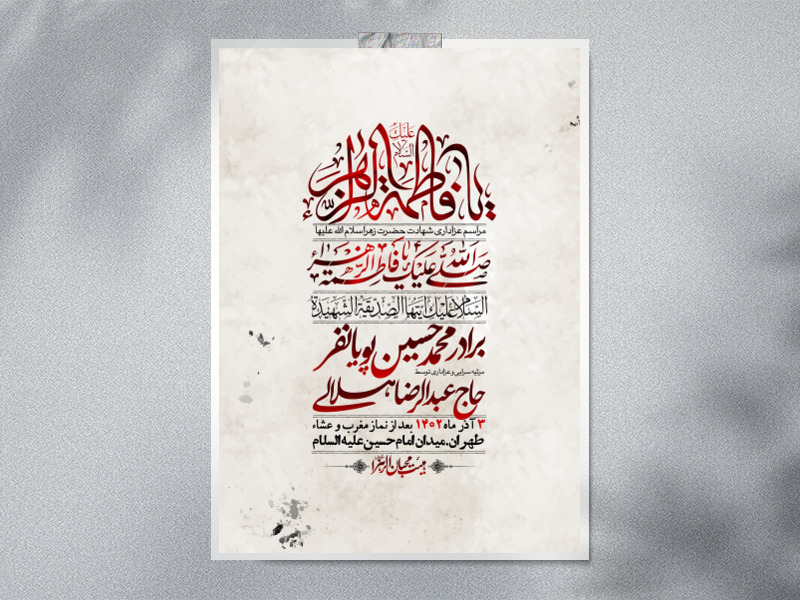 یا فاطمة الزهراء
السلام علیک
مراسم عزاداری شهادت حضرت زهرا سلام الله علیها
صلی الله علیک یا فاطمة الزهراء
السَّلامُ عَلَیْکِ أَیَّتُهَا الصِّدِّیقَةُ الشَّهِیدَةُ
برادر محمد حسین پویانفر
مرثیه سرایی و عزاداری توسط
حاج عبدالرضا هلالی
۳ آذر ماه ۱۴۰۲ بعد از نماز مغرب و عشاء
طهران، میدان امام حسین علیه السلام
هیئت محبان الزهرا